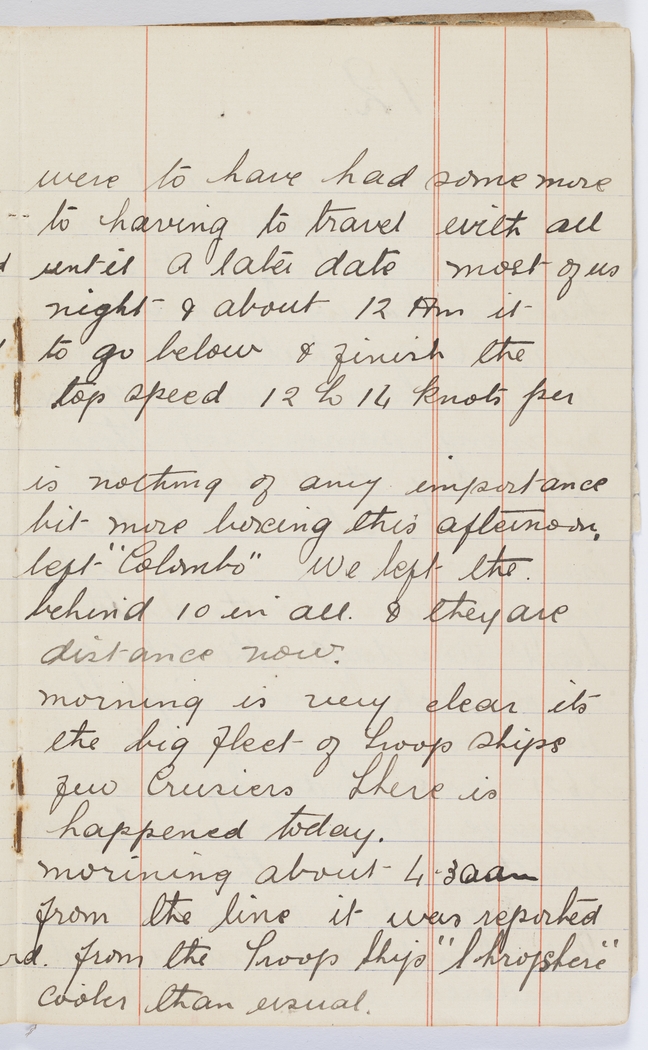 were to have had some more
to having to travel with all
until a later date most of us
night & about 12 Am it
to go below & finish the
top speed 12 to 14 knots per
is nothing of any importance
bit more boxing this afternoon.
left "Colombo" We left the.
behind 10 in all. & they are
distance now.
morning is very clear its
the big fleet of troop ships
few Crusiers There is
happened today.
morining about 4.30am
from the line it was reported
rd. from the Troop Ship "Shropshere"
cooler than usual.